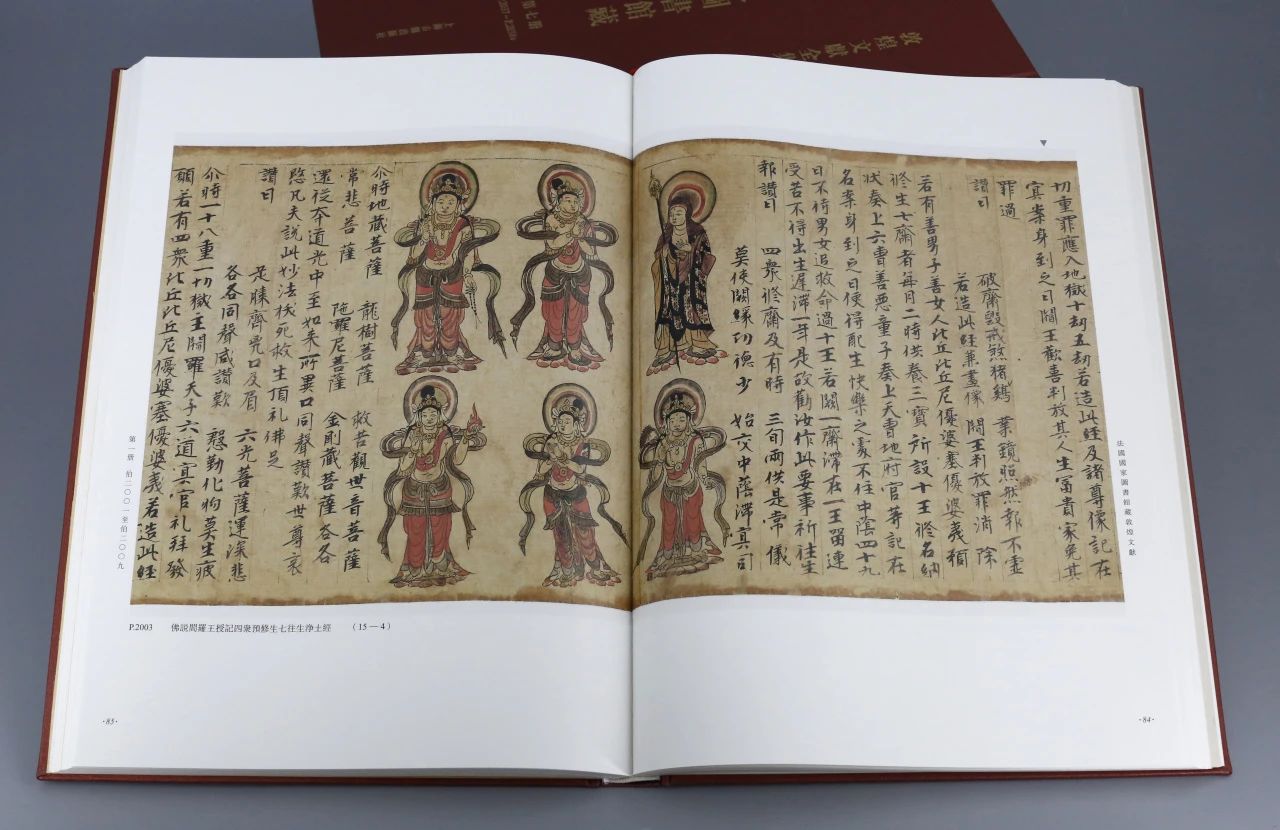 圖書館藏
敦煌文獻全
第七册
上海古籍出版社
法國國家圖書館藏敦煌文獻
切重罪應入地獄十劫五劫若造此經及諸尊像記在
冥案身到之日閻王歡喜判放其人生冨貴家免其
罪過
讚曰 破齋毀戒煞猪鷄 業鏡照然報不虛
若造此經兼畫像 閻王判放罪消除
若有善男子善女人比丘比丘尼優婆塞優婆夷預
修生七齋者每月二時供養三寶所設十王修名納
狀奏上六曹善惡童子奏上天曹地府官等記在
名案身到之日便得配生快樂之處不住中蔭四十九
日不待男女追救命過十王若闕一齋滯在一王留連
受苦不得出生遲滯一年是故勸汝作此要事祈往生
報讚曰 四衆修齋及有時 三旬兩供是常儀
莫使闕緣功德少 始交中蔭滯冥司
·84·
尒時地藏菩薩 龍樹菩薩 觀世音菩薩
常悲菩薩 陁羅尼菩薩 金剛藏菩薩各各
還從本道光中至如来所異口同聲讚歎世尊哀
愍凡夫說此妙法拔死救生頂礼佛足
讚曰 足膝齊胷口及眉 六光菩薩運深悲
各各同聲咸讚歎 慇勤化物莫生疲
尒時十八重一切獄主閻羅天子六道冥官礼拜發
願若有四衆比丘比丘尼優婆塞優婆夷若造此經
P.2003 佛説閻羅王授記四衆預修生七往生淨土經 （15—4）
第一册 伯二〇〇一至伯二〇〇九
·85·